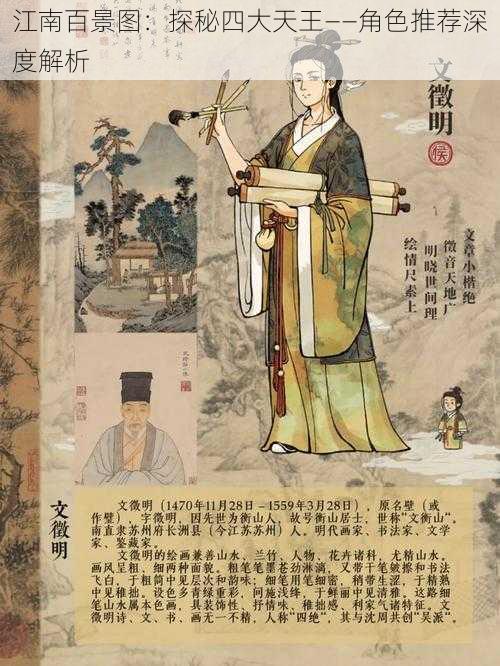 江南百景图：探秘四大天王——角色推荐深
度解析
文徵明
文章小楷绝
徵音天地广
明晓世间理
绘情尺素上
文徵明
文徵明（1470年11月28日-1559年3月28日），原名壁（或
作璧），字徵明，因先世为衡山人，故号衡山居士，世称“文衡山”，
南直隶苏州府长洲县（今江苏苏州）人。明代画家、书法家、文学
家、鉴藏家。
文徵明的绘画兼善山水、兰竹、人物、花卉诸科，尤精山水。
画风呈粗、细两种面貌。粗笔笔墨苍劲淋漓，又带干笔皴擦和书法
飞白，于粗简中见层次和韵味；细笔用笔细密，稍带生涩，于精熟
中见稚拙。设色多青绿重彩，间施浅绛，于鲜丽中见清雅。这路细
笔山水属本色画，具装饰性、抒情味、稚拙感、利家气诸特征。文
徵明诗、文、书、画无一不精，人称“四绝”，其与沈周共创“吴派”。